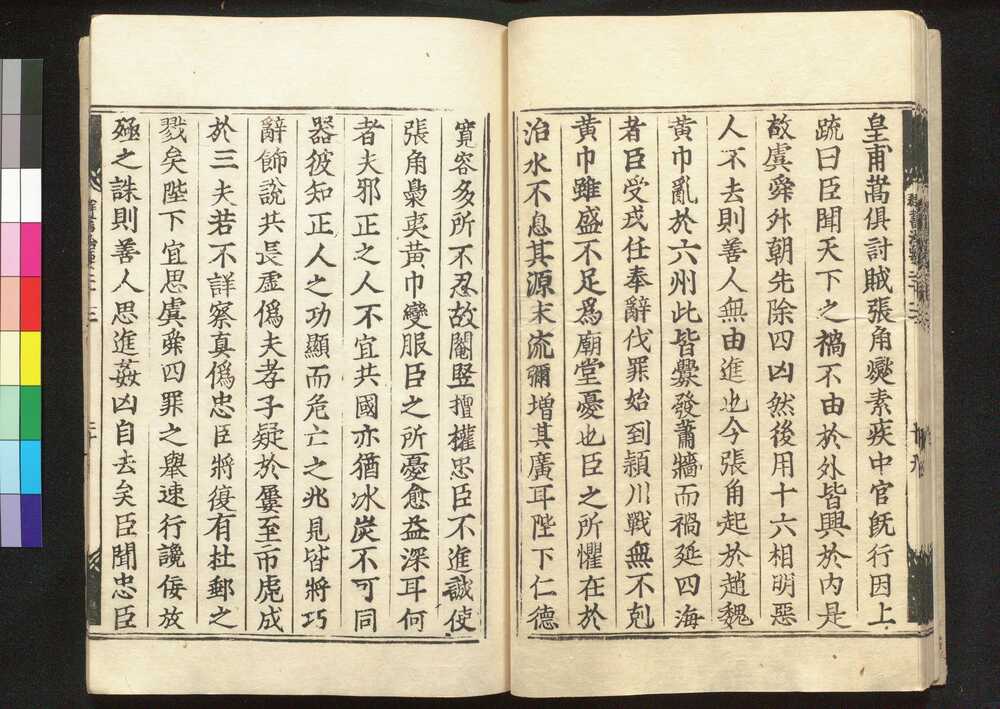 皇甫嵩俱討賊張角燮素疾中官旣行因上
疏曰臣聞天下之禍不由於外皆興於內是
故虞舜外朝先除四凶然後用十六相明惡
人不去則善人無由進也今張角起於趙魏
黃巾亂於六州此皆釁發蕭牆而禍延四海
者臣受戎任奉辭伐罪始到潁川戰無不剋
黃巾雖盛不足爲廟堂憂也臣之所懼在於
治水不息其源末流彌增其廣耳陛下仁德
寬容多所不忍故閹豎擅權忠臣不進誠使
張角梟夷黃巾變服臣之所憂愈益深耳何
者夫邪正之人不宜共國亦猶冰炭不可同
器彼知正人之功顯而危亡之兆見皆將巧
辭飾說共長虛僞夫孝子疑於屢至市虎成
於三夫若不詳察真僞忠臣將復有杜郵之
戮矣陛下宜思虞舜四罪之舉速行讒佞放
殛之誅則善人思進姦凶自去矣臣聞忠臣